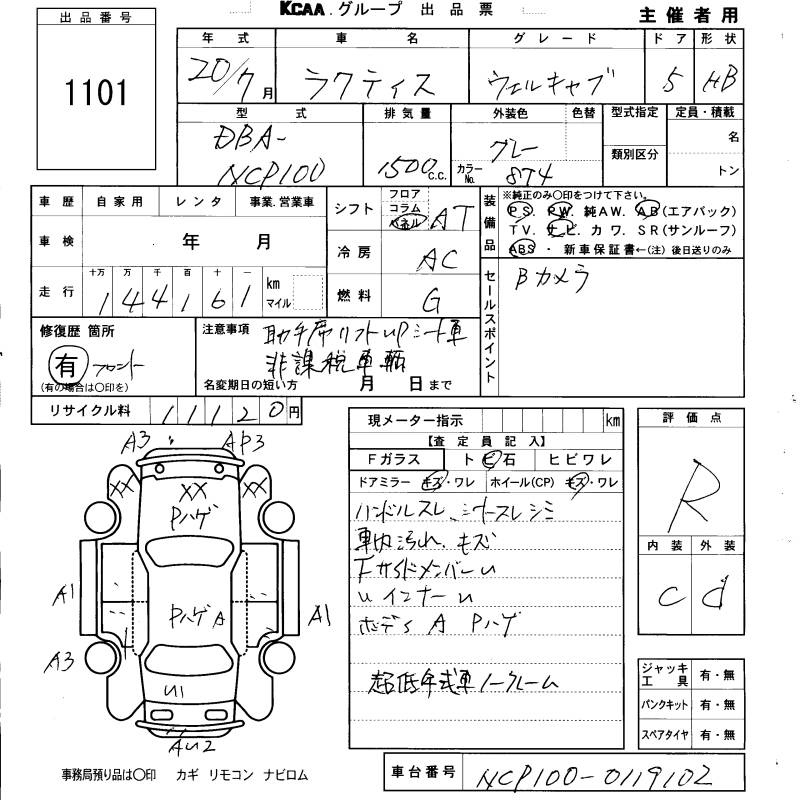 KCAA.グループ 出品票
主催者用
出品番号
1101
年式 車名 グレード ドア 形状
20/7月 ラクティス ウェルキャブ 5 HB
型式 排気量 外装色 色替 型式指定 定員・積載
DBA-
NCP100 1500c.c. グレー カラーNo. 874 類別区分 名
トン
車歴 自家用 レンタ 事業.営業車
車検 年 月
走行 十万 万 千 百 十 一 km マイル
1 4 4 1 6 1
シフト フロア コラム パネル AT
冷房 AC
燃料 G
装備品 ※純正のみ○印をつけて下さい。
PS. PW. 純AW. AB(エアバック)
TV. ナビ. カワ. SR(サンルーフ)
ABS ・ 新車保証書←(注) 後日送りのみ
セールスポイント
Bカメラ
修復歴 箇所
有 フロント
(有の場合は○印を)
注意事項 助手席リフトupシート車
非課税車輌
名変期日の短い方 月 日まで
リサイクル料 1 1 1 2 0 円
現メーター指示 km
【査定員記入】
Fガラス トビ石 ヒビワレ
ドアミラー キズ・ワレ ホイール(CP) キズ・ワレ
ハンドルスレ、シートスレシミ
車内汚れ、キズ
FサイドメンバーU
U インナーU
ボデS A Pハゲ
超低年式車ノークレーム
評価点
R
内装 外装
C d
A3 AP3
XX XX XX
Pハゲ
A1 PハゲA A1
A3
U1
AU2
ジャッキ工具 有・無
パンクキット 有・無
スペアタイヤ 有・無
事務局預り品は○印 カギ リモコン ナビロム
車台番号 NCP100-0119102